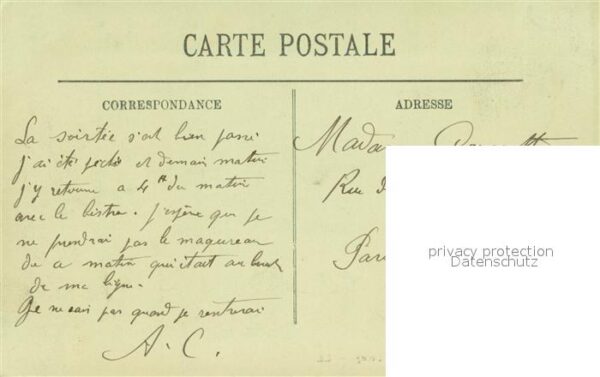 CARTE POSTALE
CORRESPONDANCE
ADRESSE
La soirée s'est bien passé
j'ai été pêché et demain matin
j'y retourne a 4 h du matin
avec le bistro. j'espère que je
ne perdrai pas le maquereau
de ce matin qui était au bout
de ma ligne.
Je ne sais pas quand je rentrerai
A. C.
Rue
privacy protection
Datenschutz